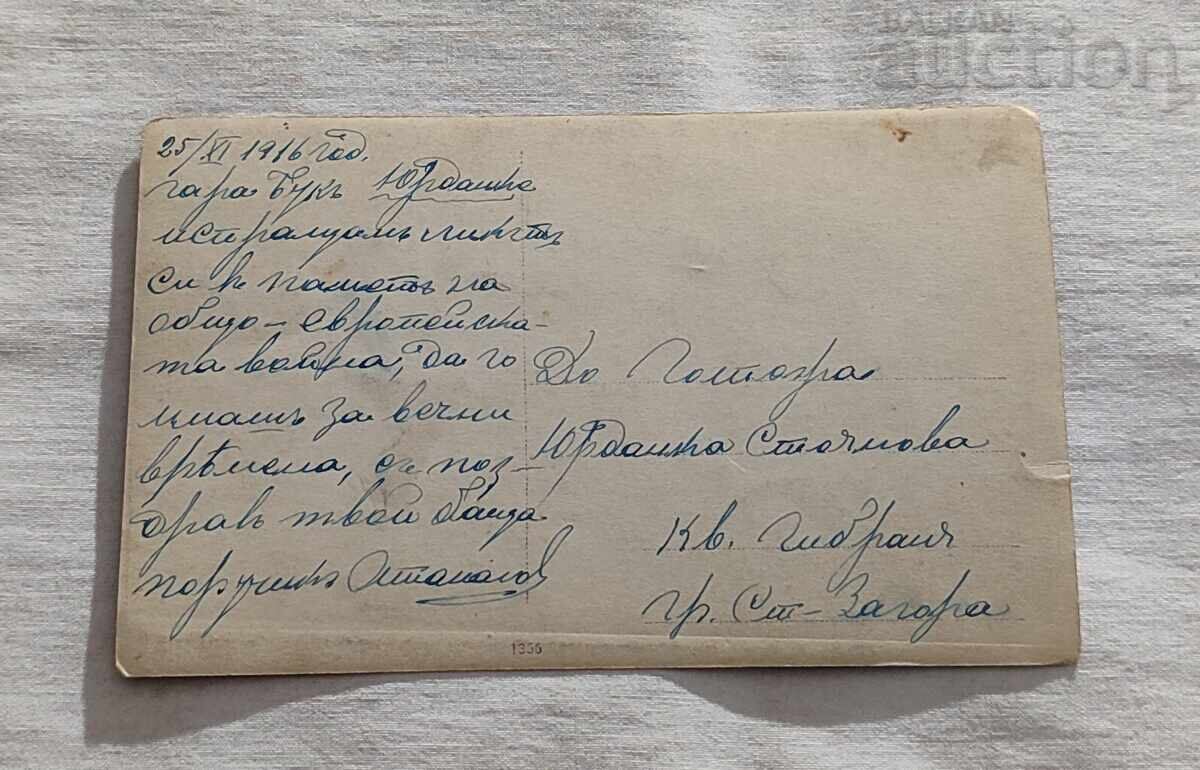 BALKAN
auction
25/XI 1916 год.
гара Букъ Юрданке
испращамъ ликътъ
си в паметь на
общо-европейска-
та война, да го
имашъ за вечни
врѣмена, съ поз-
дравъ твой баща
поручикъ Атанасов
До Господжа
Юрданка Стоянова
Кв.
гр. Ст-Загора
1356